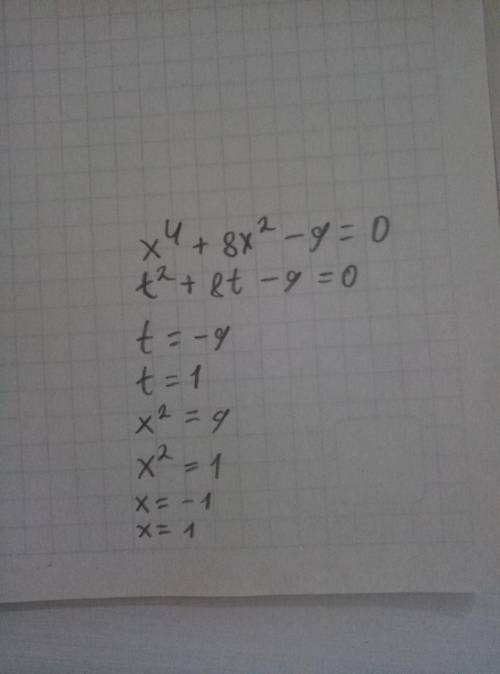 x⁴ + 8x² - 9 = 0
t² + 8t - 9 = 0
t = -9
t = 1
x² = 9
x² = 1
x = -1
x = 1